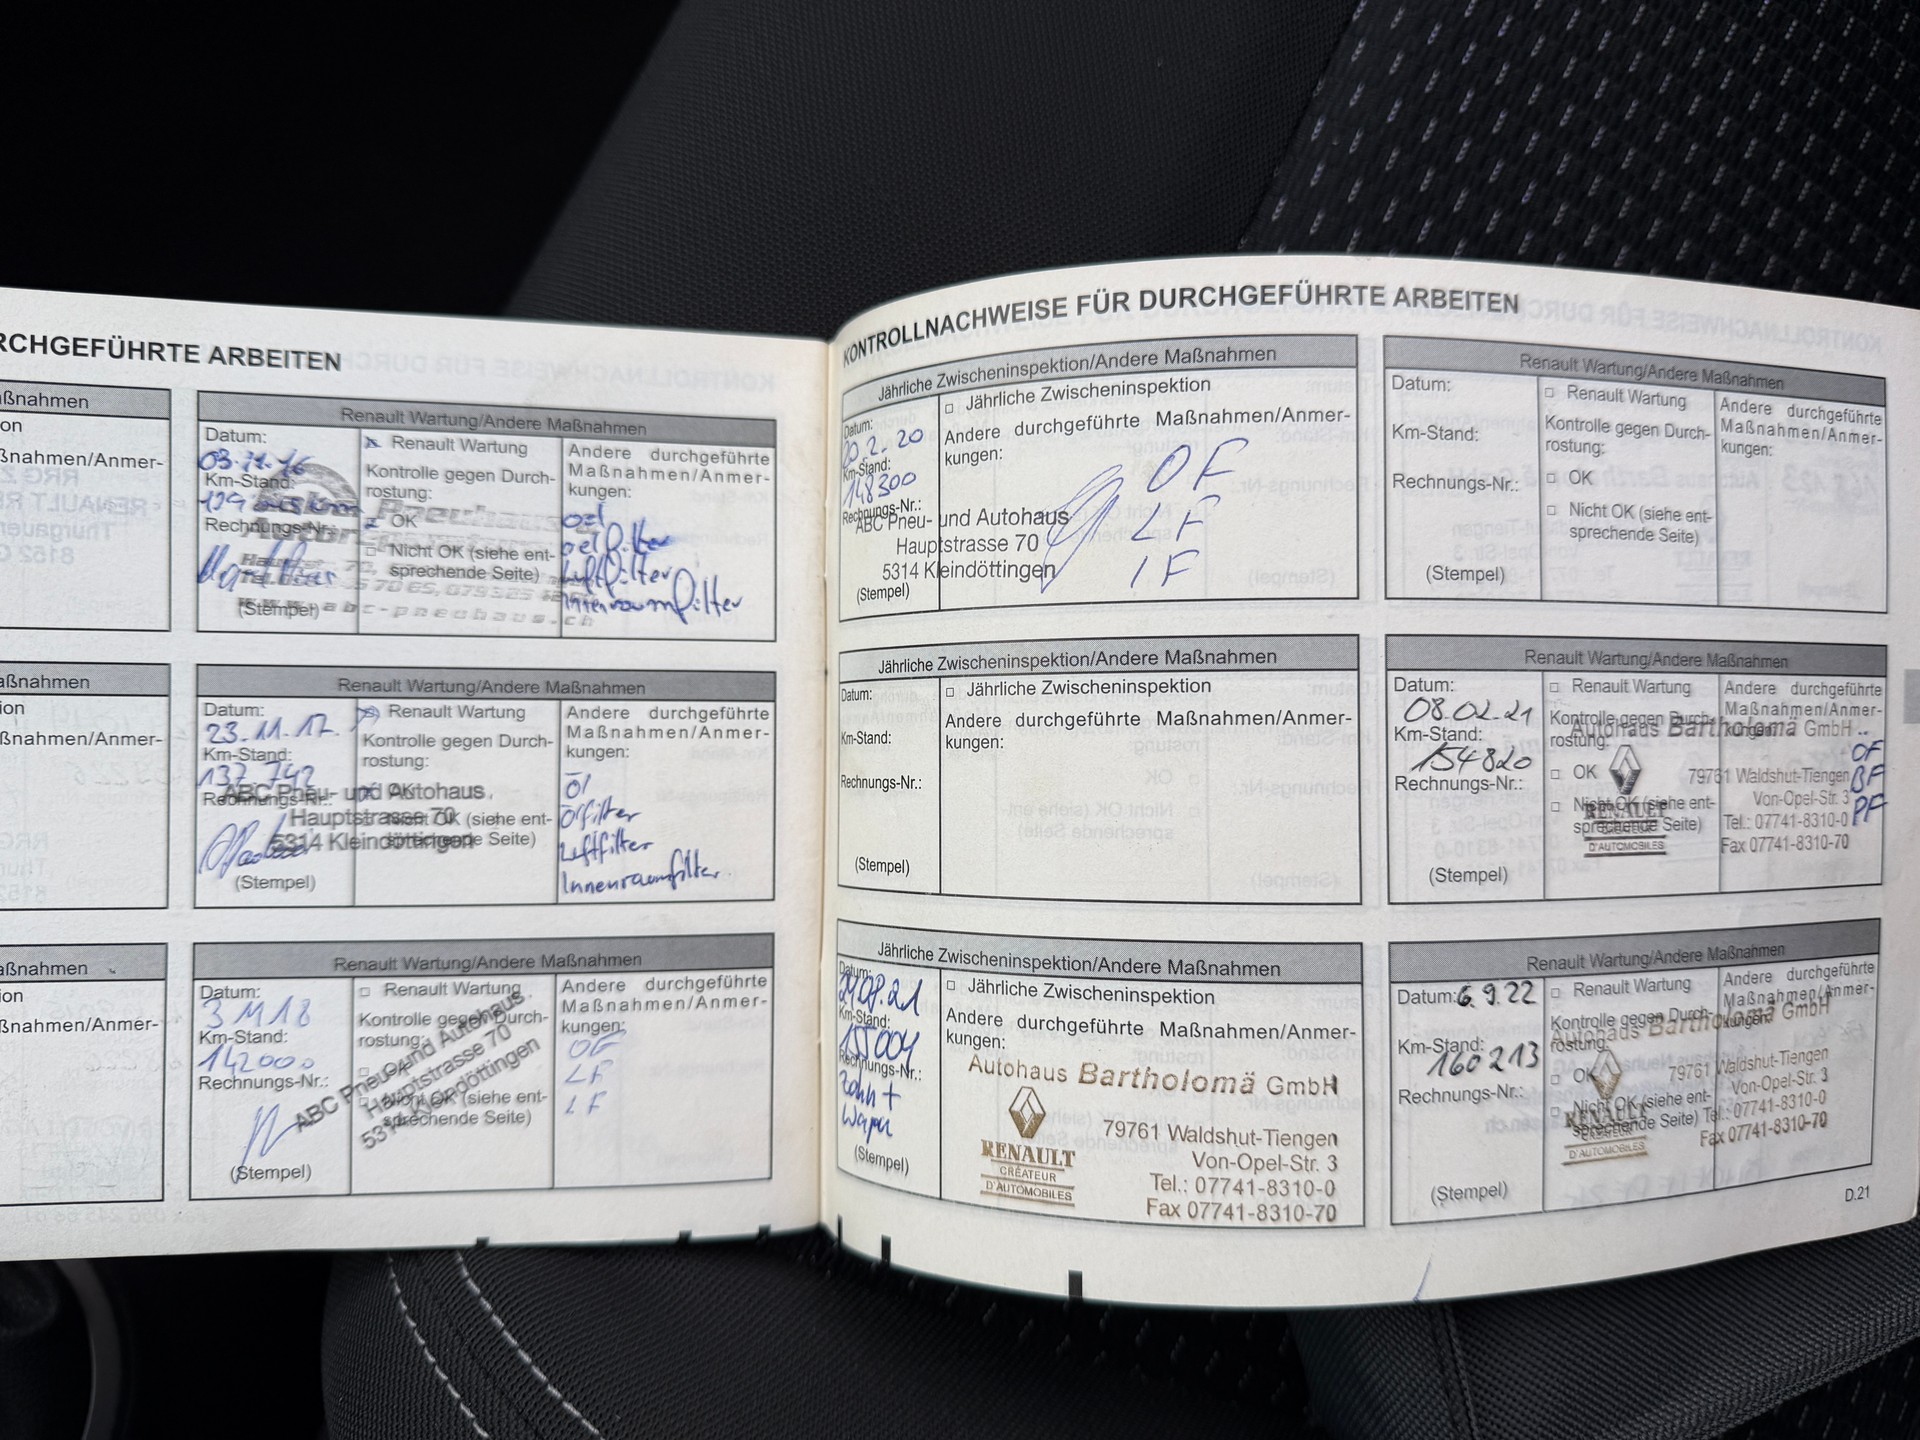 RCHGEFÜHRTE ARBEITEN
aßnahmen
ion
ßnahmen/Anmer-
aßnahmen
ion
ßnahmen/Anmer-
aßnahmen
ion
ßnahmen/Anmer-
Renault Wartung/Andere Maßnahmen
Datum:
03.11.16
Km-Stand:
Rechnungs-Nr.:
(Stempel)
Renault Wartung
Kontrolle gegen Durch-
rostung:
OK
Nicht OK (siehe ent-
sprechende Seite)
www.abc-pneuhaus.ch
Andere durchgeführte
Maßnahmen/Anmer-
kungen:
oel
oelfilter
Luftfilter
Innenraumfilter
Renault Wartung/Andere Maßnahmen
Datum:
23.11.17.
Km-Stand:
137.742
Rechnungs-Nr.:
ABC Pneu- und Autohaus
Hauptstrasse 70
5314 Kleindöttingen
(Stempel)
Renault Wartung
Kontrolle gegen Durch-
rostung:
OK
Nicht OK (siehe ent-
sprechende Seite)
Andere durchgeführte
Maßnahmen/Anmer-
kungen:
Öl
Ölfilter
Luftfilter
Innenraumfilter.
Renault Wartung/Andere Maßnahmen
Datum:
3 11 18
Km-Stand:
142000
Rechnungs-Nr.:
ABC Pneu- und Autohaus
Hauptstrasse 70
5314 Kleindöttingen
(Stempel)
Renault Wartung
Kontrolle gegen Durch-
rostung:
OK
Nicht OK (siehe ent-
sprechende Seite)
Andere durchgeführte
Maßnahmen/Anmer-
kungen:
LF
KONTROLLNACHWEISE FÜR DURCHGEFÜHRTE ARBEITEN
Jährliche Zwischeninspektion/Andere Maßnahmen
Datum:
20.2.20
Km-Stand:
148300
Rechnungs-Nr.:
ABC Pneu- und Autohaus
Hauptstrasse 70
5314 Kleindöttingen
(Stempel)
Jährliche Zwischeninspektion
Andere durchgeführte Maßnahmen/Anmer-
kungen:
OF
LF
IF
Renault Wartung/Andere Maßnahmen
Datum:
Km-Stand:
Rechnungs-Nr.:
(Stempel)
Renault Wartung
Kontrolle gegen Durch-
rostung:
OK
Nicht OK (siehe ent-
sprechende Seite)
Andere durchgeführte
Maßnahmen/Anmer-
kungen:
Jährliche Zwischeninspektion/Andere Maßnahmen
Datum:
Km-Stand:
Rechnungs-Nr.:
(Stempel)
Jährliche Zwischeninspektion
Andere durchgeführte Maßnahmen/Anmer-
kungen:
Renault Wartung/Andere Maßnahmen
Datum:
08.02.21
Km-Stand:
154820
Rechnungs-Nr.:
(Stempel)
Renault Wartung
Kontrolle gegen Durch-
rostung:
OK
Nicht OK (siehe ent-
sprechende Seite)
Andere durchgeführte
Maßnahmen/Anmer-
kungen:
Autohaus Bartholomä GmbH
RENAULT
D'AUTOMOBILES
79761 Waldshut-Tiengen
Von-Opel-Str. 3
Tel.: 07741-8310-0
Fax 07741-8310-70
OF
BF
PF
Jährliche Zwischeninspektion/Andere Maßnahmen
Datum:
Km-Stand:
155004
Rechnungs-Nr.:
Zahn +
(Stempel)
Jährliche Zwischeninspektion
Andere durchgeführte Maßnahmen/Anmer-
kungen:
Autohaus Bartholomä GmbH
RENAULT
CRÉATEUR
D'AUTOMOBILES
79761 Waldshut-Tiengen
Von-Opel-Str. 3
Tel.: 07741-8310-0
Fax 07741-8310-70
Renault Wartung/Andere Maßnahmen
Datum: 6.9.22
Km-Stand:
160213
Rechnungs-Nr.:
(Stempel)
Renault Wartung
Kontrolle gegen Durch-
rostung:
OK
Nicht OK (siehe ent-
sprechende Seite)
Andere durchgeführte
Maßnahmen/Anmer-
kungen:
Autohaus Bartholomä GmbH
RENAULT
CRÉATEUR
D'AUTOMOBILES
79761 Waldshut-Tiengen
Von-Opel-Str. 3
Tel.: 07741-8310-0
Fax 07741-8310-70
D.21